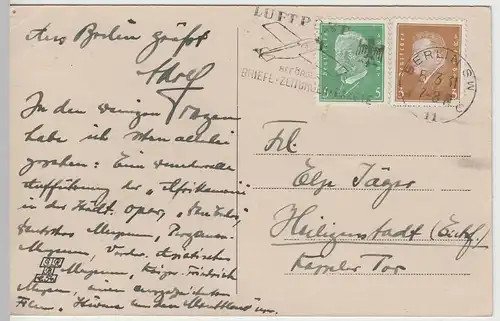 Aus Berlin grüßt
Adolf
In den wenigen Tagen
habe ich schon allerlei
gesehen: Eine wundervolle
Aufführung der „Afrikanerin"
in der Städt. Oper,
Deutsches Museum, Pergamon-
Museum, Vorder-Asiatisches
Museum, Kaiser-Friedrich
Museum, einen ausgezeichneten
Film.
LUFTP
BRIEFE-ZEITUNGEN-PAKETE
BERLIN SW
11
5
3
Frl.
Else Jäger
Heiligenstadt (Eichsf.)
Kasseler Tor